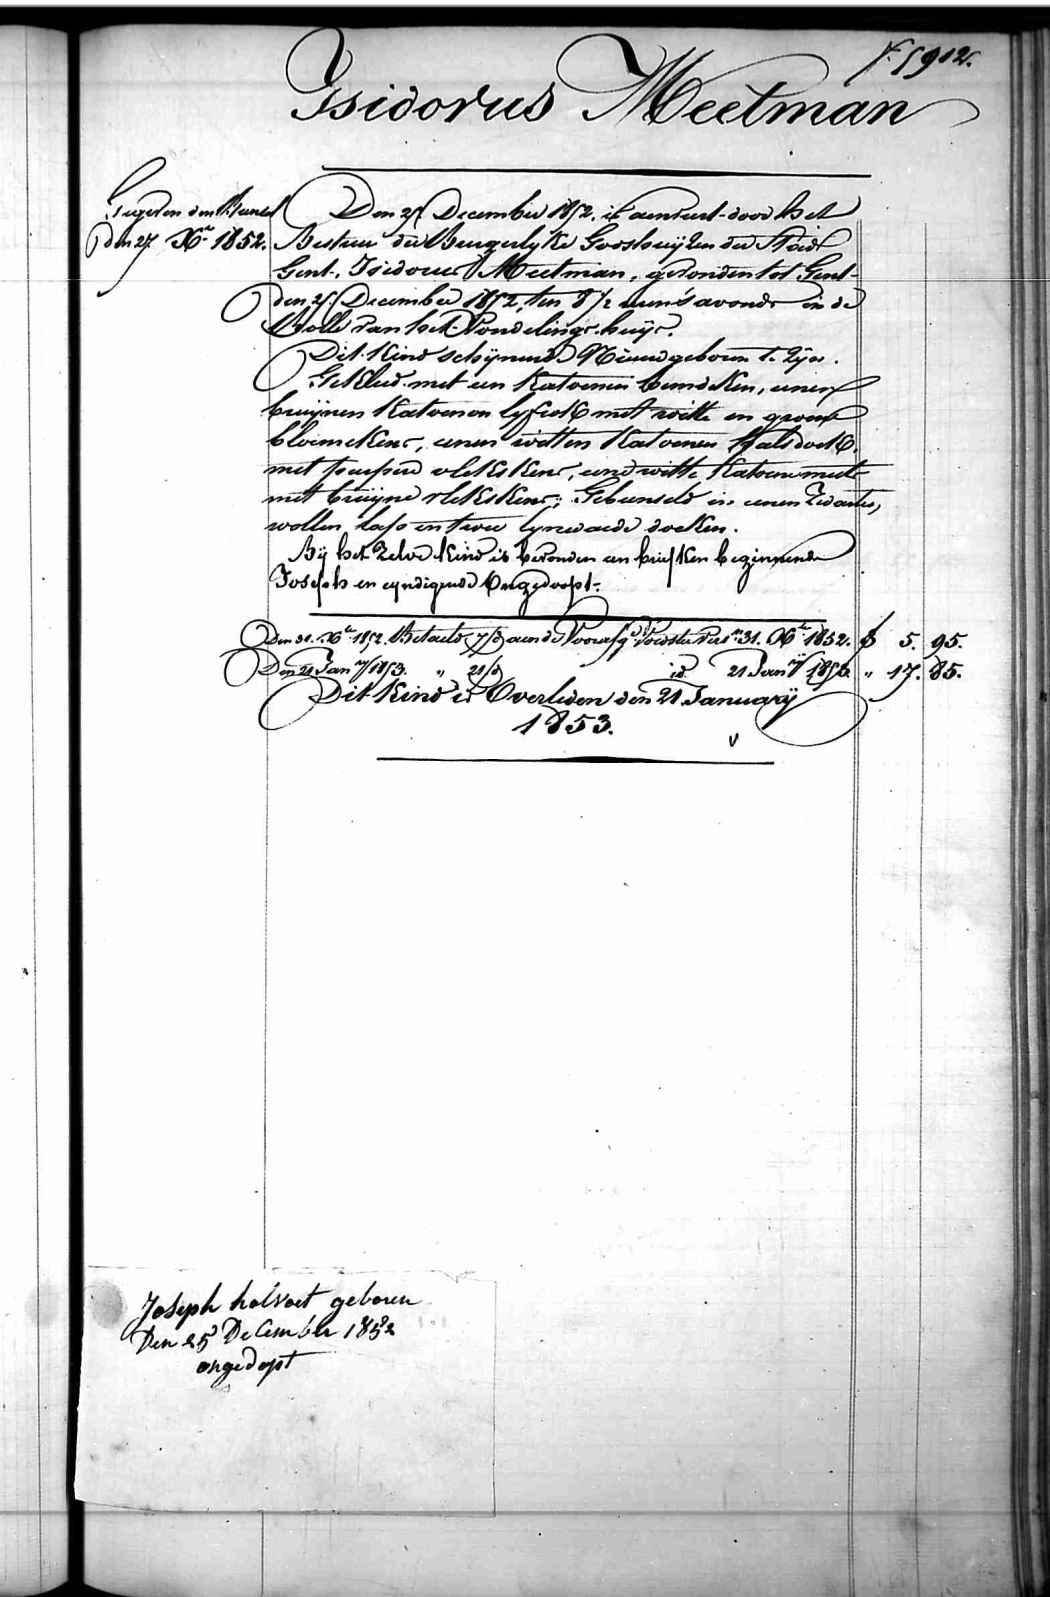 f. 5912.
Isidorus Meetman
Gegeven den
den 27 Xber 1852.
Den 25 December 1852. is aenveerd door het
Bestuer der Burgerlyke Godshuyzen der Stad
Gent, Isidorus Meetman, gevonden tot Gent
den 25 December 1852, ten 8 1/2 uren 's avonds in de
Rolle van het Vondelings-huys.
Dit Kind schynende Nieuwgeboren te Zyn.
Gekleed met een Katoenen hemdeken, eenen
bruynen Katoenen lyfrok met witte en groene
bloemekens, eenen witten Katoenen halsdoek
met purpere vlekskens, eene witte Katoene muts
met bruyne vlekskens; Gebunseld in eenen Zwarten
wollen laps en twee lynwaede doeken.
By het Zelve Kind is bevonden een briefken beginnende
Joseph en eyndigende Ongedoopt.
Den 31. Xber 1852. Betaeld (7/d) aen de Voorsz. Voedster vers. 31. Xber 1852. f 5. 95.
Den 21 Jany 1853. " 21/d id. 21 Jany 1853. " 17. 85.
Dit Kind is Overleden den 21 January
1853.
Joseph holvoet geboren
Den 25 December 1852
ongedopt